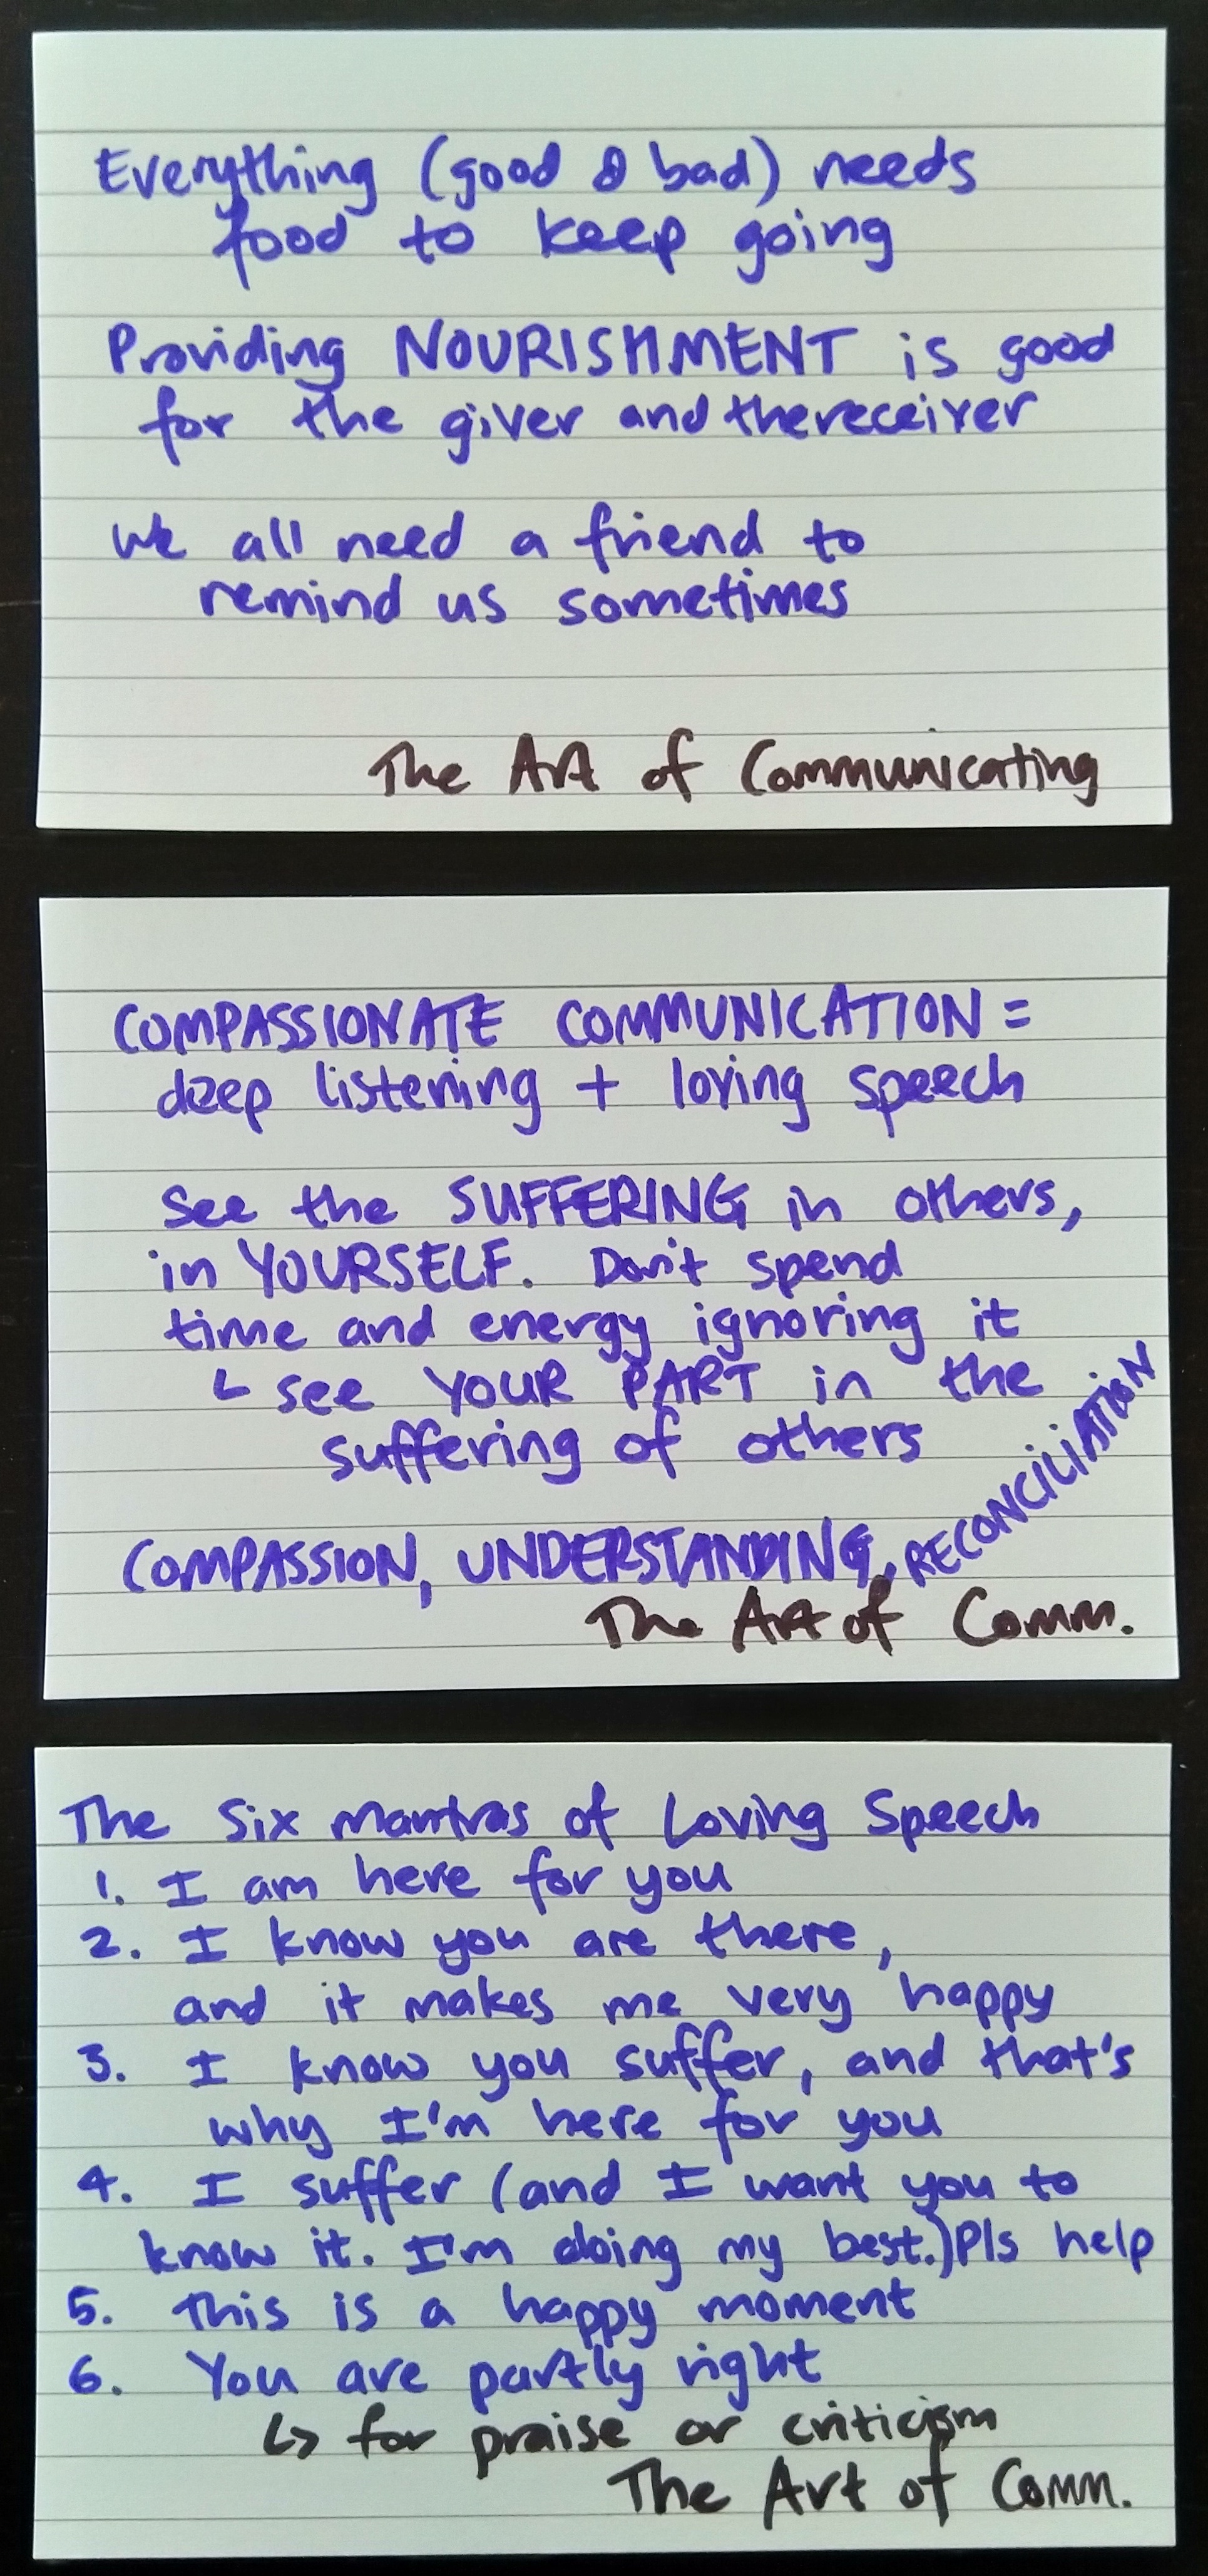 Everything (good & bad) needs
food to keep going
Providing NOURISHMENT is good
for the giver and the receiver
We all need a friend to
remind us sometimes
The Art of Communicating
COMPASSIONATE COMMUNICATION =
deep listening + loving speech
See the SUFFERING in others,
in YOURSELF. Don't spend
time and energy ignoring it
↳ see YOUR PART in the
suffering of others
COMPASSION, UNDERSTANDING, RECONCILIATION
The Art of Comm.
The Six Mantras of Loving Speech
1. I am here for you
2. I know you are there,
and it makes me very happy
3. I know you suffer, and that's
why I'm here for you
4. I suffer (and I want you to
know it. I'm doing my best.) Pls help
5. This is a happy moment
6. You are partly right
↳ for praise or criticism
The Art of Comm.